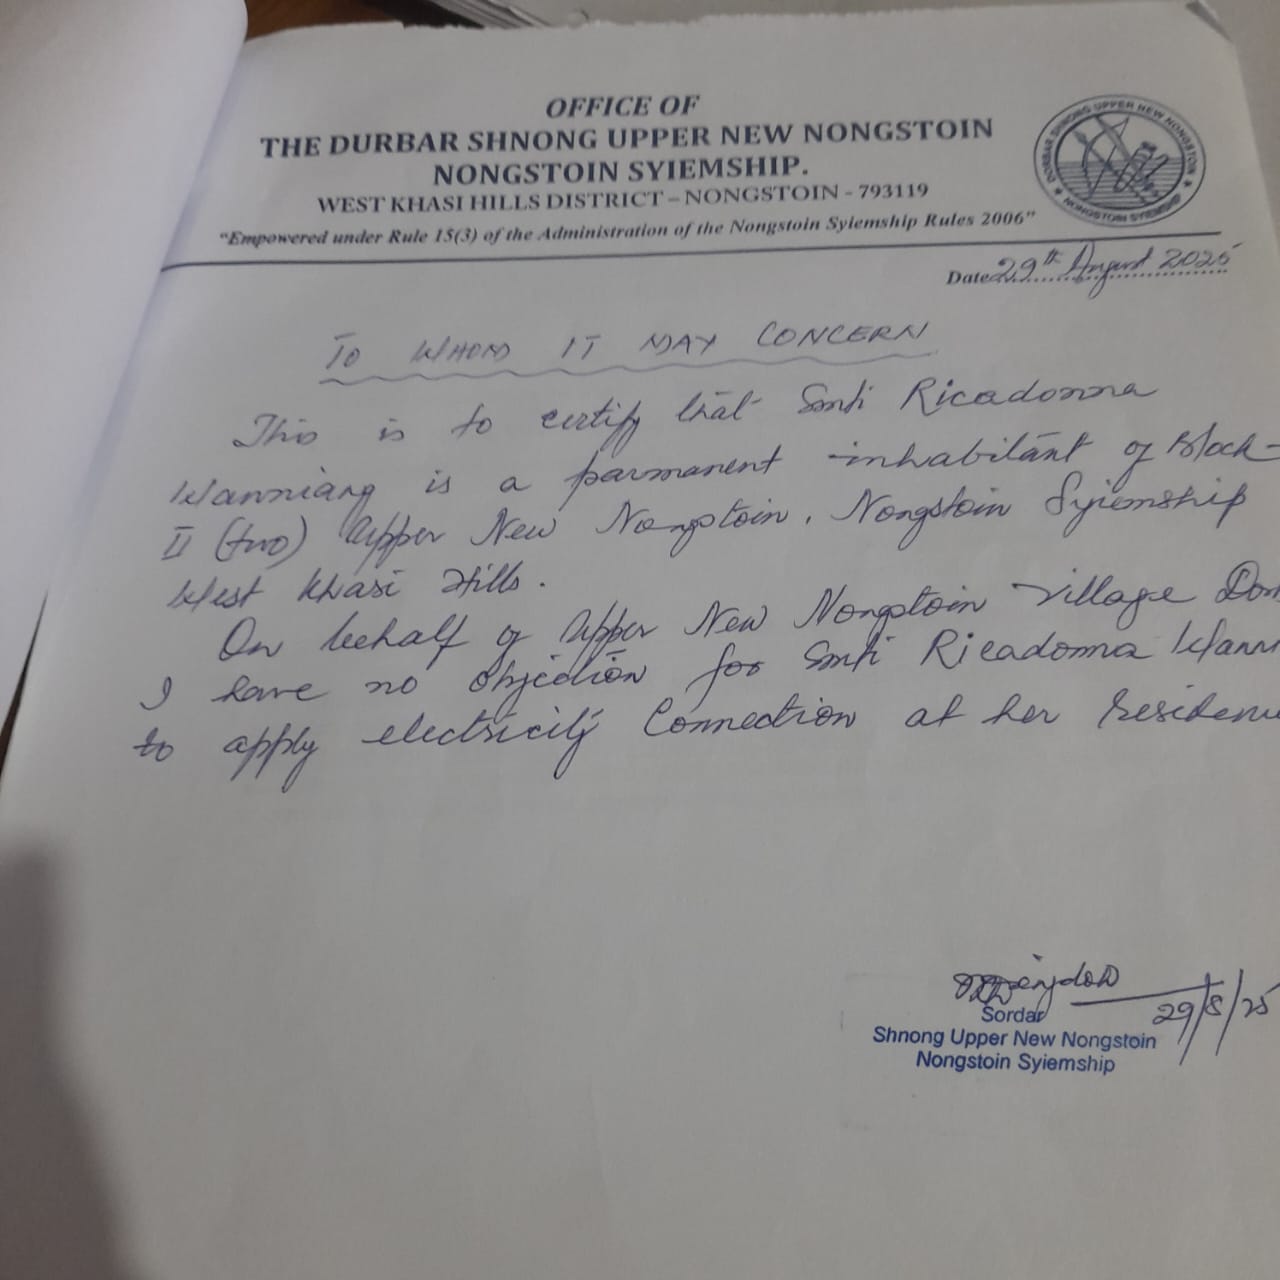 OFFICE OF
THE DURBAR SHNONG UPPER NEW NONGSTOIN
NONGSTOIN SYIEMSHIP.
WEST KHASI HILLS DISTRICT – NONGSTOIN - 793119
"Empowered under Rule 15(3) of the Administration of the Nongstoin Syiemship Rules 2006"
DURBAR SHNONG UPPER NEW NONGSTOIN
NONGSTOIN SYIEMSHIP
Date 29th August 2025
TO WHOM IT MAY CONCERN
This is to certify that Smti Ricadonna
Wanniang is a parmanent inhabitant of Block-
II (two) Upper New Nongstoin, Nongstoin Syiemship
West Khasi Hills.
On behalf of Upper New Nongstoin Village
I have no objection for Smti Ricadonna
to apply electricity Connection at her
29/8/25
Sordar
Shnong Upper New Nongstoin
Nongstoin Syiemship